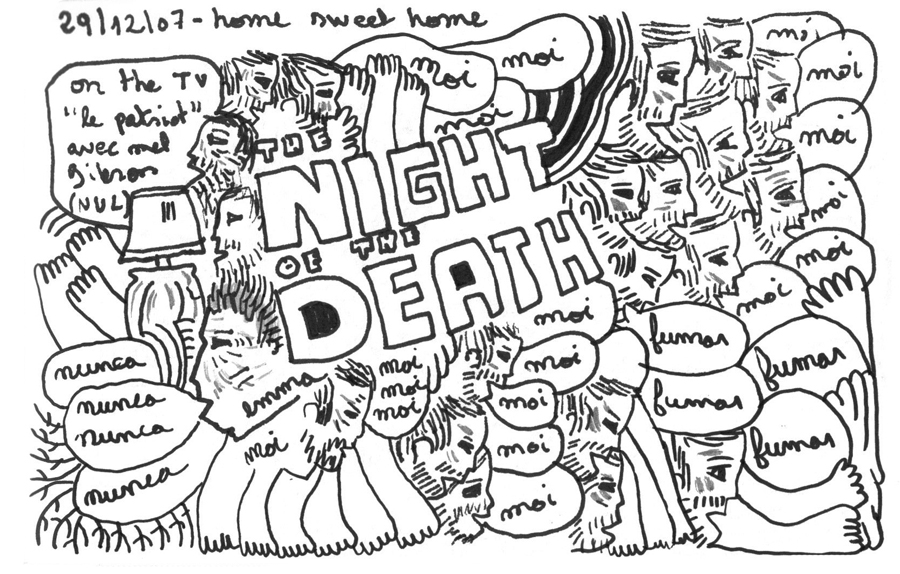 29/12/07 - home sweet home
on the TV
"le patriot"
avec mel
Gibson
(NUL)
THE
NIGHT
OF THE
DEATH
moi
moi
moi
moi
moi
moi
moi
moi
moi
moi
nunca
nunca
nunca
nunca
emma
moi
moi
moi
moi
moi
moi
moi
moi
moi
fumas
fumas
fumas
fumas